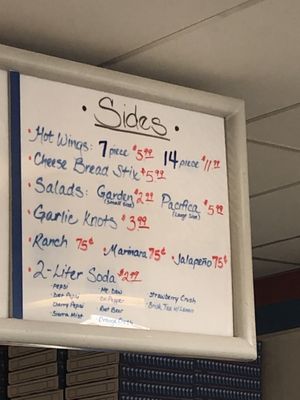 • Sides •
• Hot Wings: 7 piece $5.99 14 piece $11.99
• Cheese Bread Stix $5.99
• Salads: Garden $2.99 Pacifica $5.99
(Small Size) (Large Size)
• Garlic Knots $3.99
• Ranch 75¢ • Marinara 75¢ • Jalapeño 75¢
• 2-Liter Soda $2.99
- Pepsi - Mt. Dew Strawberry Crush
- Diet Pepsi - Dr. Pepper
- Cherry Pepsi - Root Beer
- Sierra Mist - Orange Crush